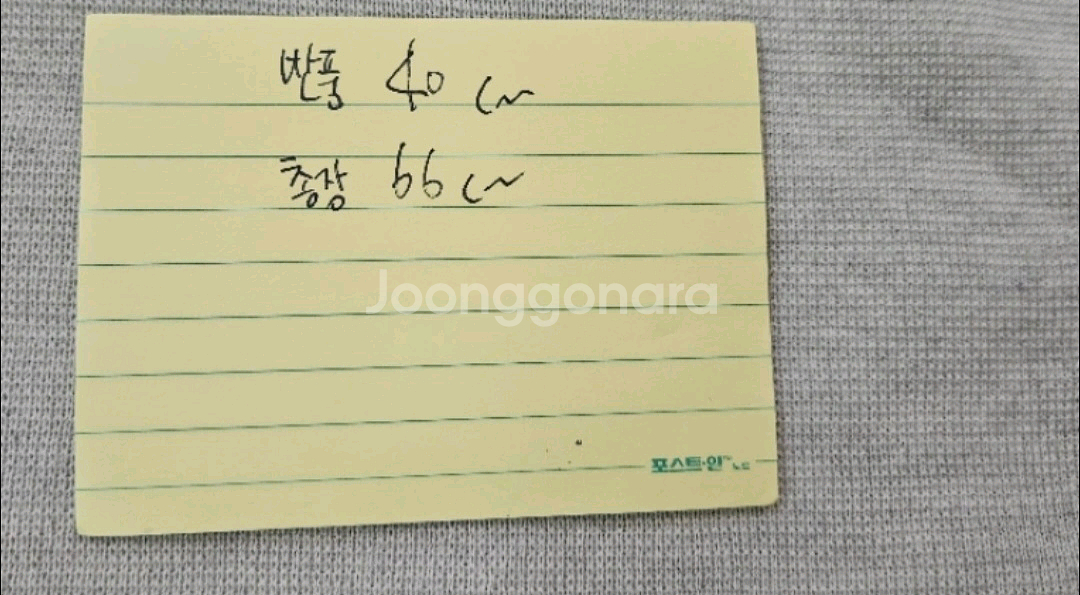 반품 40 cm
총장 66 cm
Joonggonara
포스트·인™ 노트